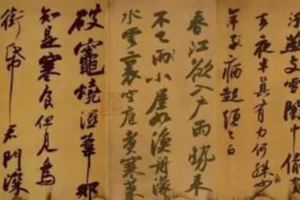 夜半真有力何殊少
年子病起頭已白
春江欲入戶雨勢來
不已雨小屋如漁舟濛
水雲裏空庖煮寒菜
破竈燒濕葦那
知是寒食但見烏
銜帋君門深